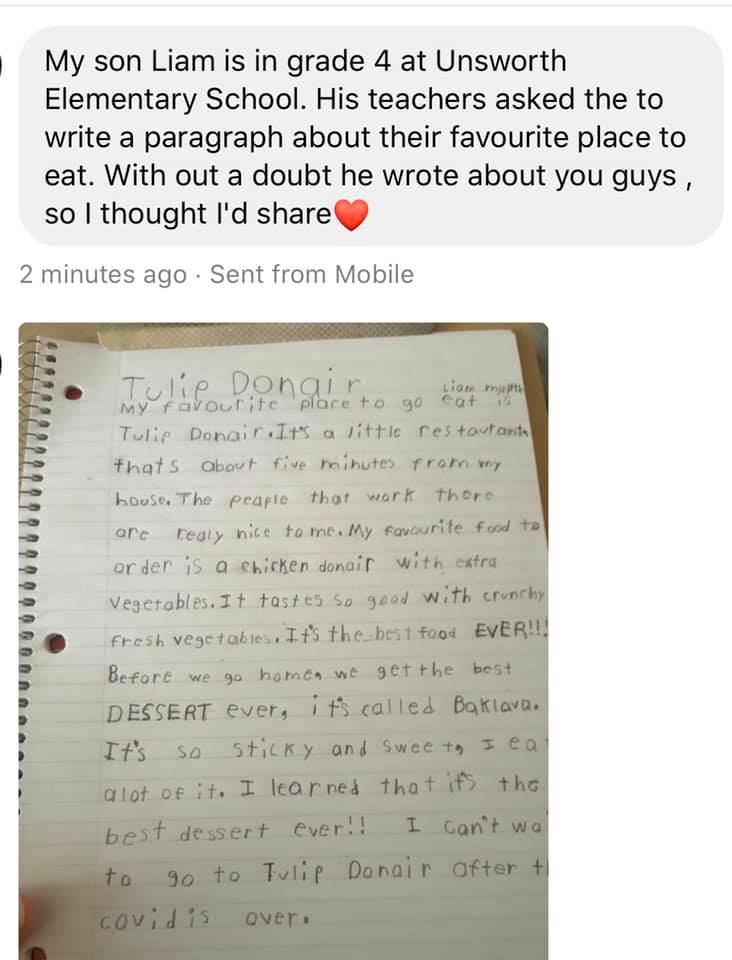 My son Liam is in grade 4 at Unsworth
Elementary School. His teachers asked the to
write a paragraph about their favourite place to
eat. With out a doubt he wrote about you guys ,
so I thought I'd share❤️
2 minutes ago · Sent from Mobile
Tulip Donair Liam
My favourite place to go eat is
Tulip Donair. It's a little restaurants
thats about five minutes from my
house. The peaple that work there
are realy nice to me. My favourite food to
order is a chicken donair with extra
vegetables. It tastes so good with crunchy
fresh vegetables. It's the best food EVER!!!
Before we go home, we get the best
DESSERT ever, it's called Baklava.
It's so sticky and sweet, I ea
alot of it. I learned that it's the
best dessert ever!! I can't wa
to go to Tulip Donair after t
covid is over.